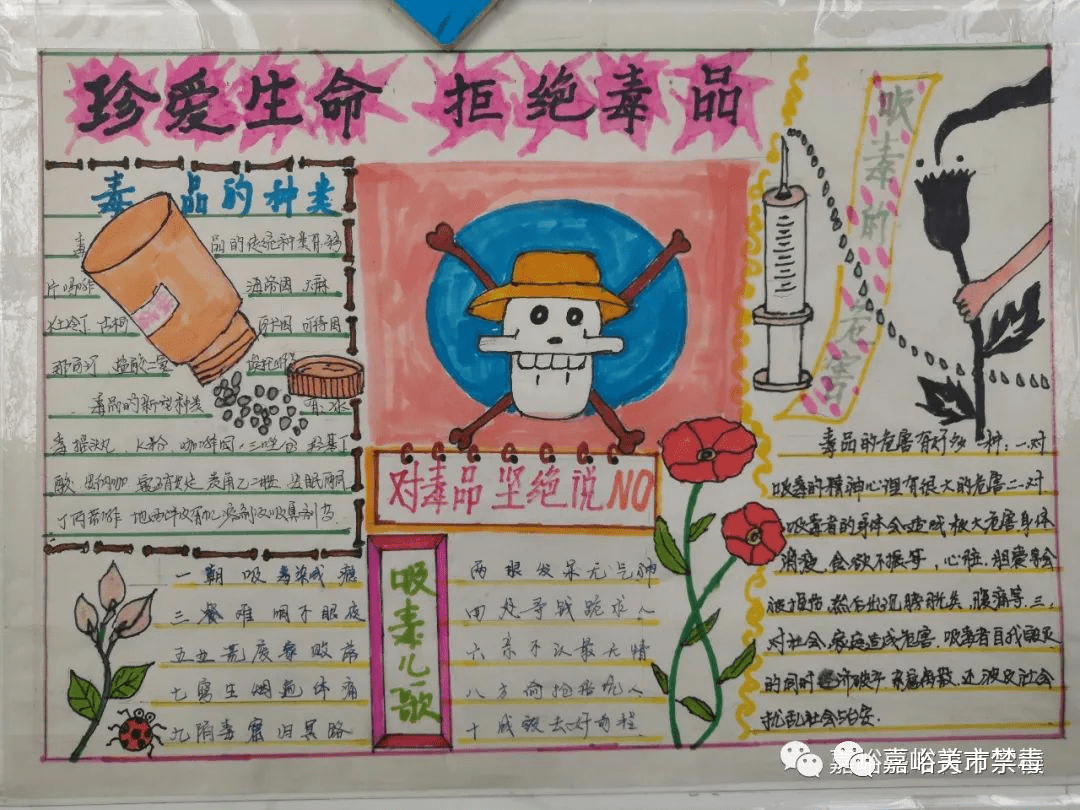 珍爱生命 拒绝毒品
毒品的种类
毒品的传统种类有鸦
片吗啡 海洛因 大麻
杜冷丁 古柯 可待因
那可汀 盐酸二氢
毒品的新型种类 有冰
毒 摇头丸 K粉 咖啡因 三唑仑
对毒品坚绝说NO
吸毒的危害
毒品的危害有好多种:一.对
吸毒的精神心理有很大的危害二.对
吸毒者的身体会造成极大危害身体
消瘦,食欲不振等,心脏,胆囊都会
被损伤,然后出现膀胱炎,腹痛等.三,
对社会,家庭造成危害.吸毒者自我毁灭
的同时经济破产 家庭离散,还波及社会
扰乱社会治安.
吸毒儿歌
一朝吸毒染成瘾
两眼发呆无气神
三餐难咽不眠夜
四处争战跪求人
五业荒废家败落
六亲不认最无情
七窍生烟遍体痛
八方偷抢骗他人
九陷毒窟归冥路
十成毁去好前程
嘉峪嘉峪关市禁毒